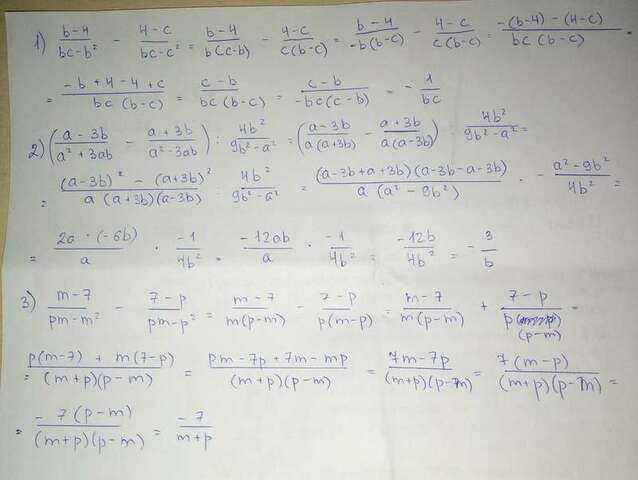 1) (b-4)/(bc-b²) - (4-c)/(bc-c²) = (b-4)/(b(c-b)) - (4-c)/(c(b-c)) = (b-4)/(-b(b-c)) - (4-c)/(c(b-c)) = (-(b-4)-(4-c))/(bc(b-c)) =
= (-b+4-4+c)/(bc(b-c)) = (c-b)/(bc(b-c)) = (c-b)/(-bc(c-b)) = -1/(bc)
2) ((a-3b)/(a²+3ab) - (a+3b)/(a²-3ab)) : 4b²/(9b²-a²) = ((a-3b)/(a(a+3b)) - (a+3b)/(a(a-3b))) : 4b²/(9b²-a²) =
= ((a-3b)² - (a+3b)²)/(a(a+3b)(a-3b)) : 4b²/(9b²-a²) = ((a-3b+a+3b)(a-3b-a-3b))/(a(a²-9b²)) · -(a²-9b²)/(4b²) =
= (2a·(-6b))/a · -1/(4b²) = (-12ab)/a · -1/(4b²) = (-12b)/(4b²) = -3/b
3) (m-7)/(pm-m²) - (7-p)/(pm-p²) = (m-7)/(m(p-m)) - (7-p)/(p(m-p)) = (m-7)/(m(p-m)) + (7-p)/(p(p-m)) =
= (p(m-7) + m(7-p))/((m+p)(p-m)) = (pm-7p+7m-mp)/((m+p)(p-m)) = (7m-7p)/((m+p)(p-m)) = (7(m-p))/((m+p)(p-m)) =
= (-7(p-m))/((m+p)(p-m)) = -7/(m+p)